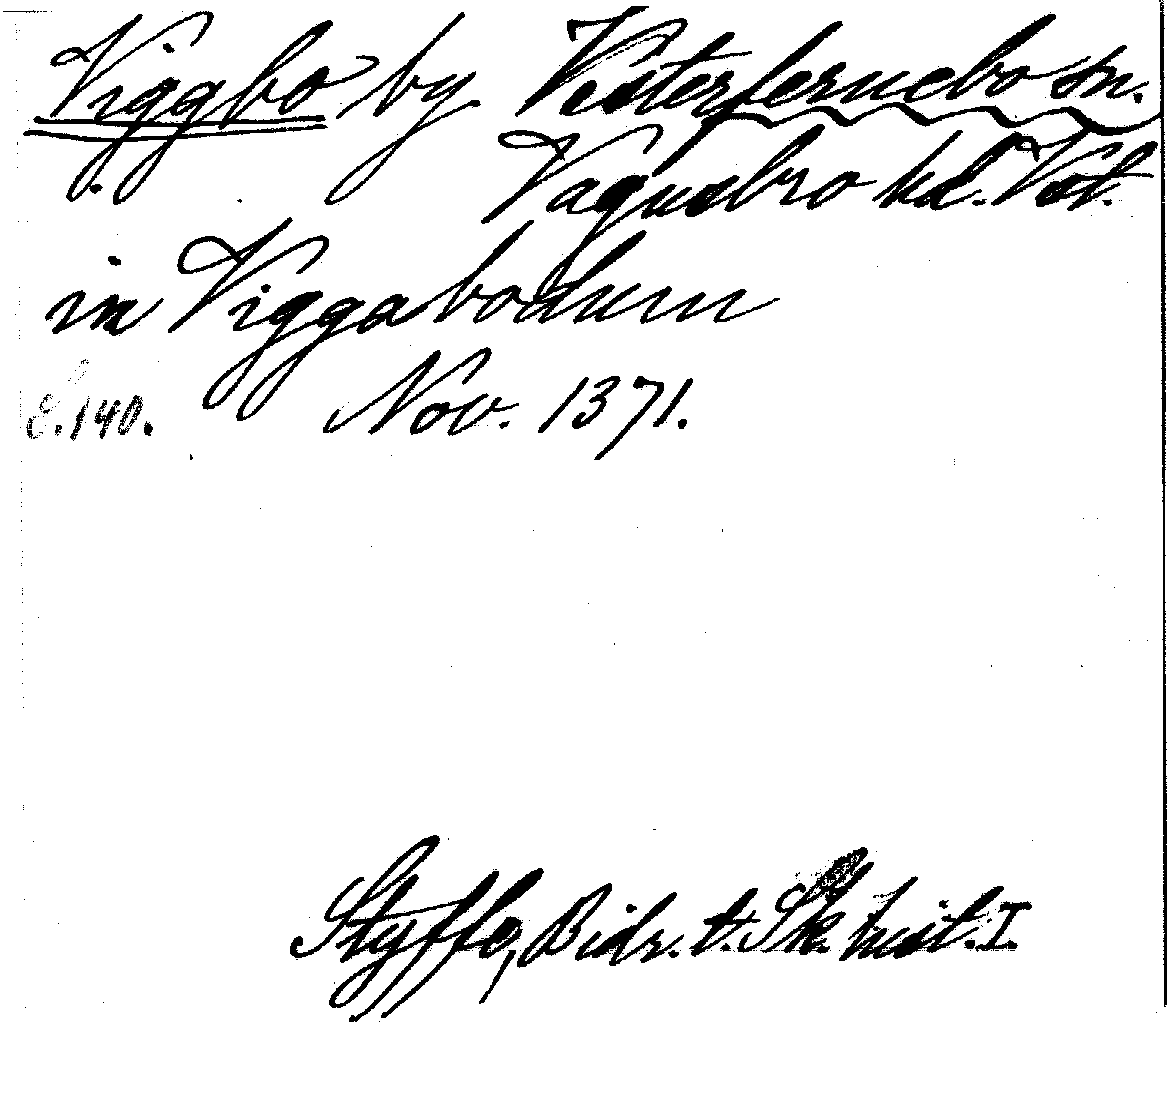 Viggbo by Vesterfernebo sn.
Vagnsbro hd. Vstm.
in Viggabodum
S. 140. Nov. 1371.
Styffe, Bidr. t. Sk. hist. I.